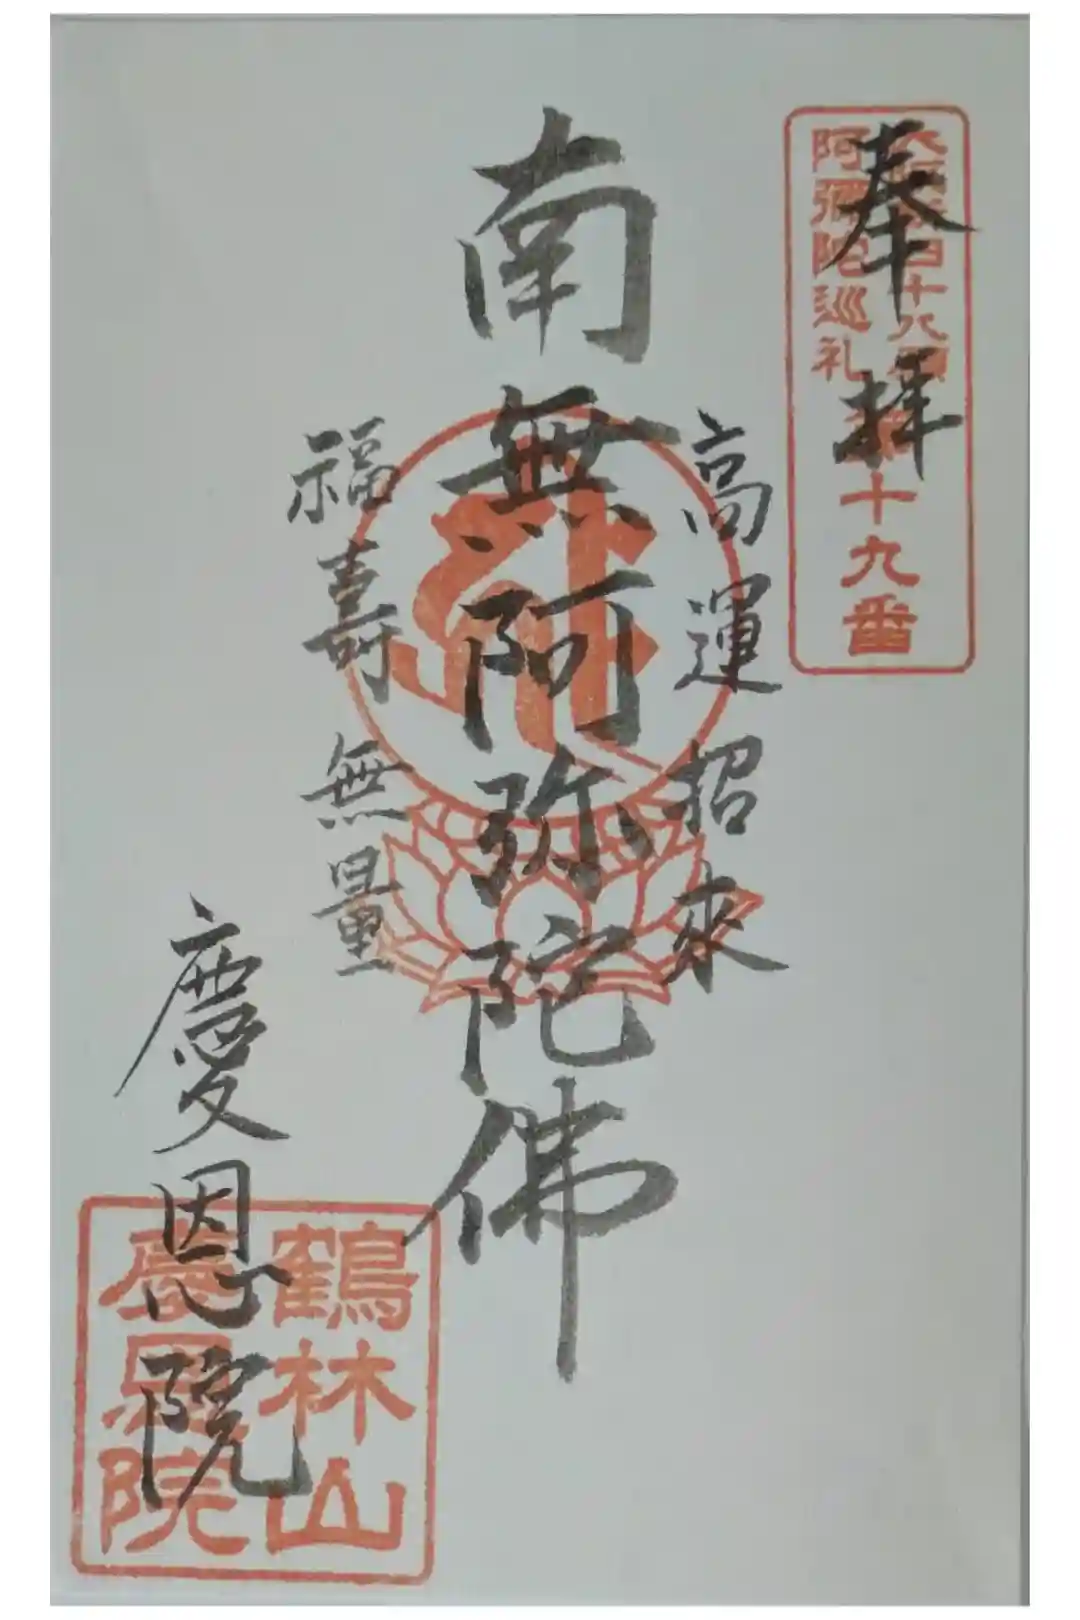 奉拝
四十八願
阿弥陀巡礼
十九番
高運招来
南無阿弥陀佛
福壽無量
慶恩院
鶴林山
慶恩院